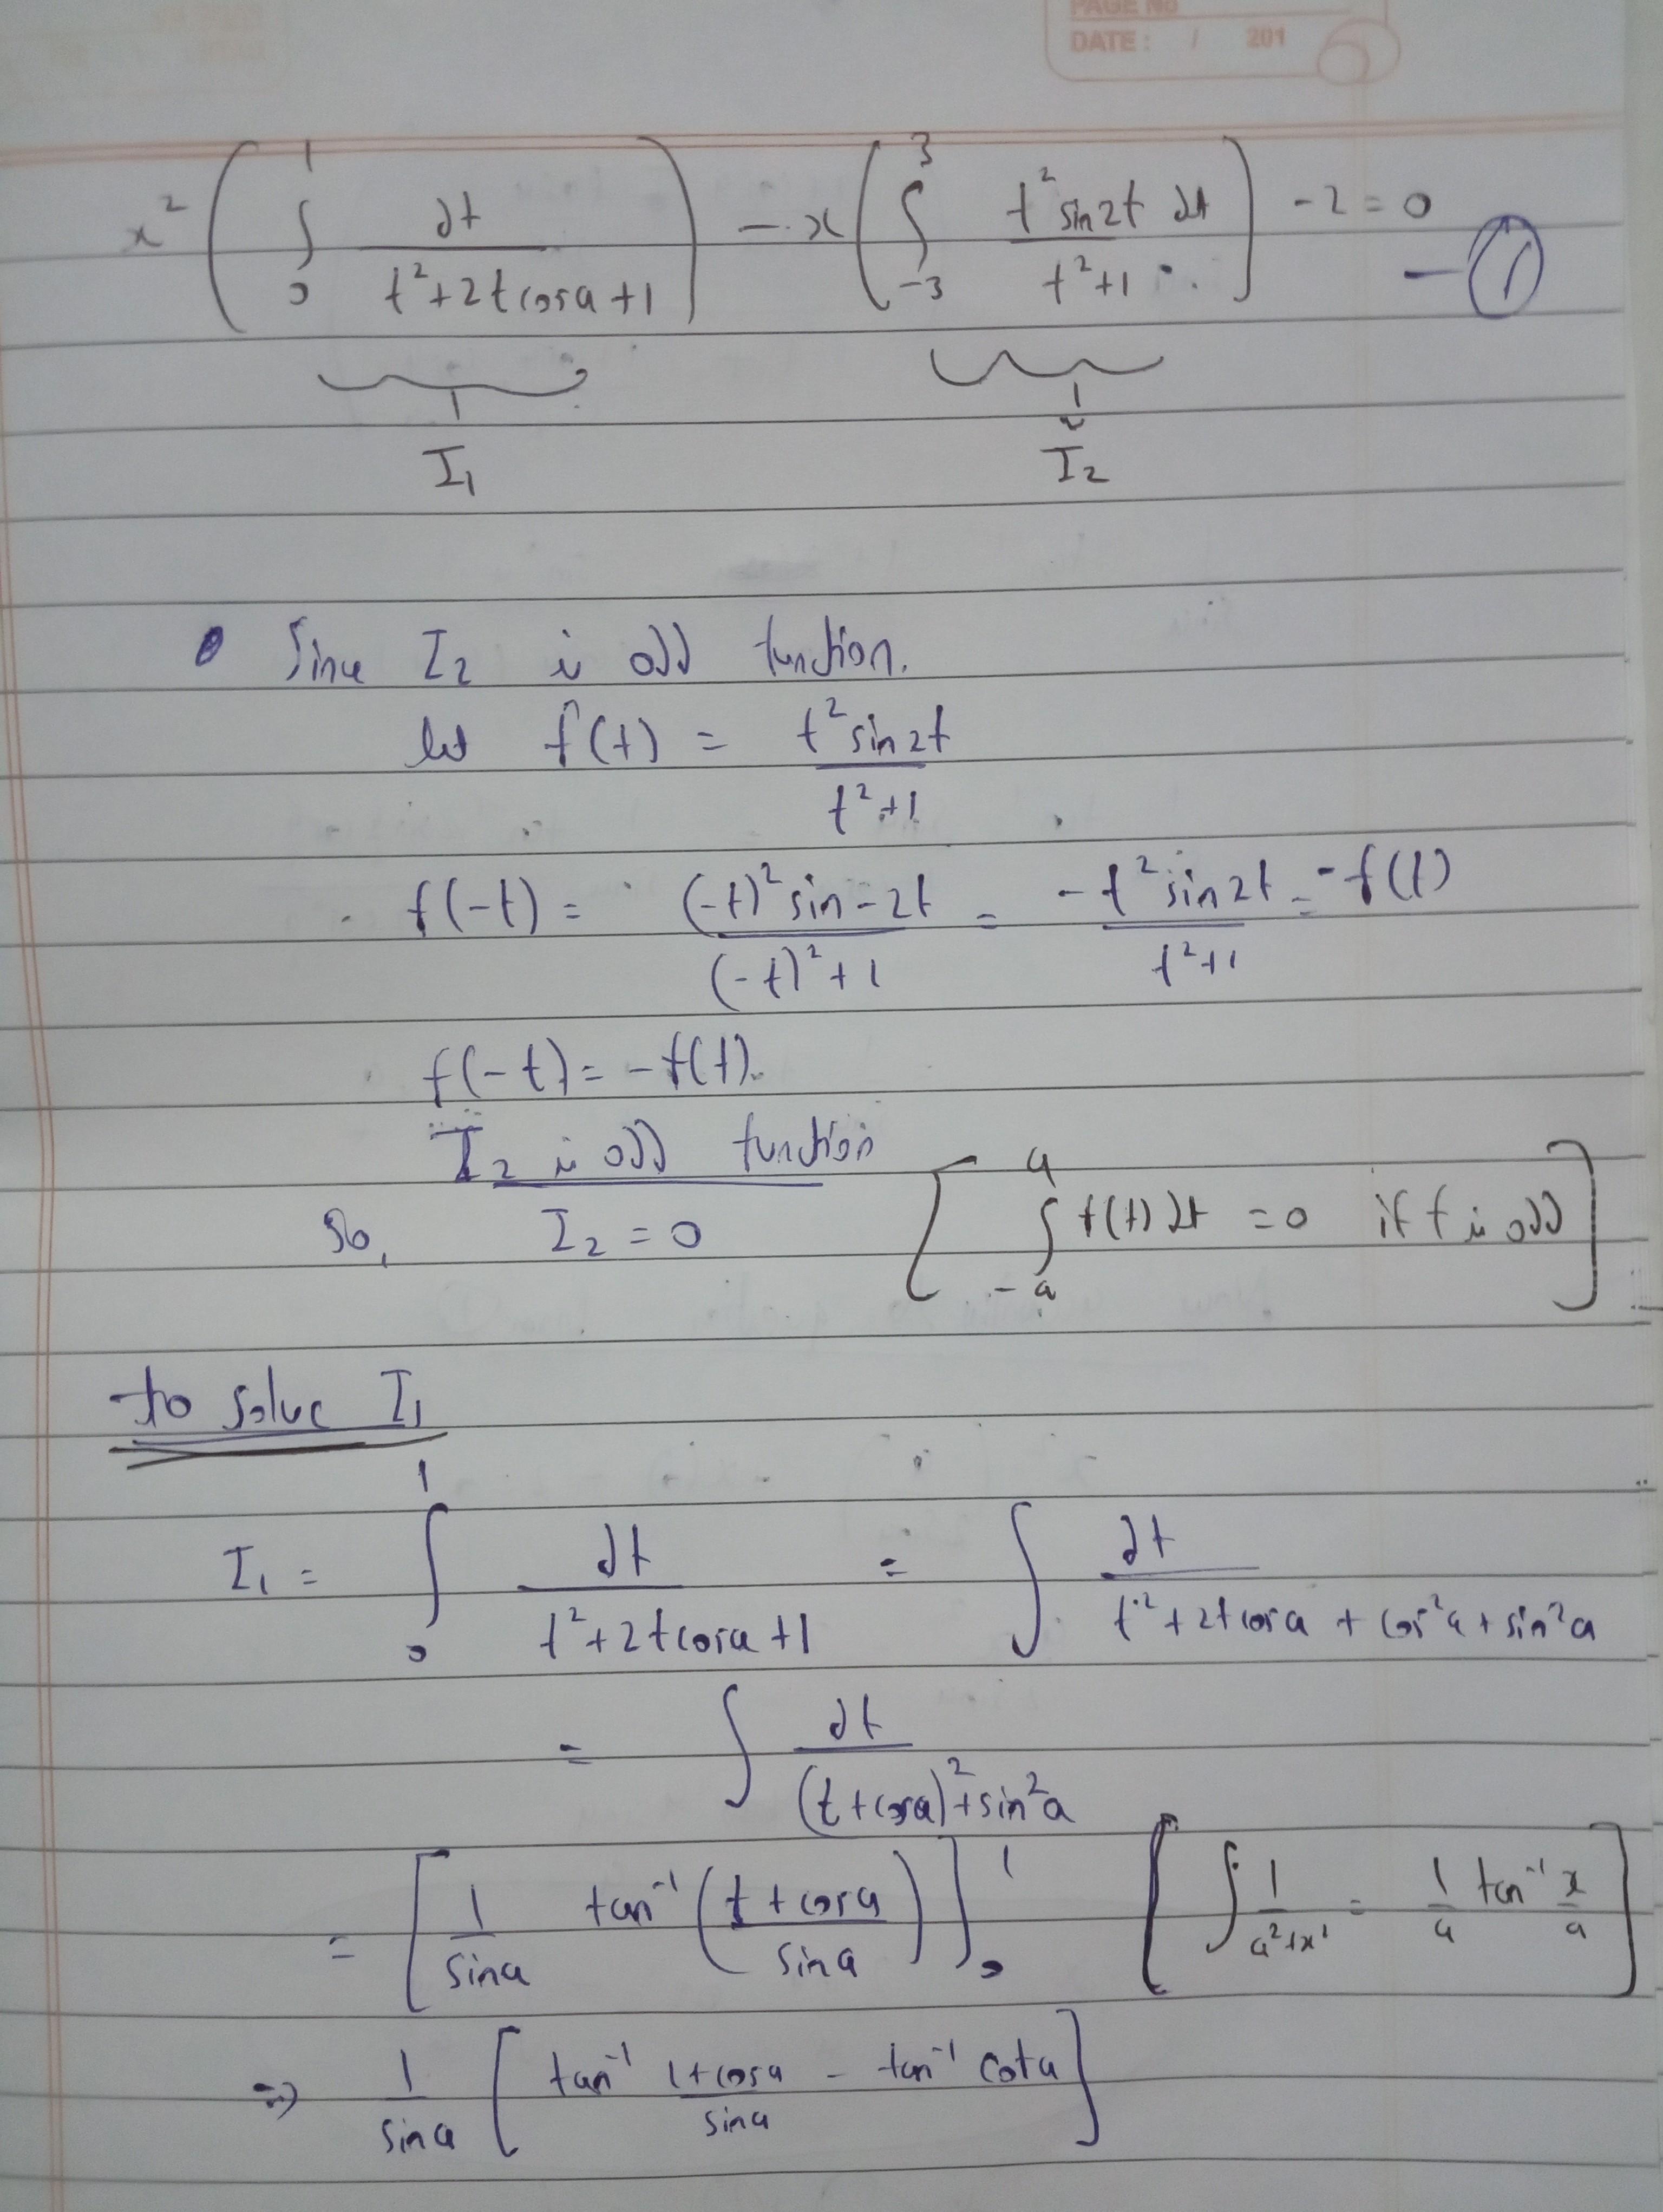 PAGE No
DATE : / 201
x² ( ∫₀¹ dt / (t²+2t cosa+1) ) - x ( ∫₋₃³ t² sin2t dt / (t²+1) ) - 2 = 0 - ①
I₁ I₂
Since I₂ is odd function.
let f(t) = t² sin2t / (t²+1)
f(-t) = (-t)² sin-2t / ((-t)²+1) = -t² sin2t / (t²+1) = -f(t)
f(-t) = -f(t).
I₂ is odd function
So, I₂ = 0 [ ∫₋ₐᵃ f(t) dt = 0 if f is odd ]
to solve I₁
I₁ = ∫₀¹ dt / (t²+2t cosa+1) = ∫ dt / (t²+2t cosa + cos²a + sin²a)
= ∫ dt / ((t+cosa)²+sin²a)
= [ 1/sina tan⁻¹ ( (t+cosa)/sina ) ]₀¹ [ ∫ 1/(a²+x²) = 1/a tan⁻¹ x/a ]
⇒ 1/sina [ tan⁻¹ (1+cosa)/sina - tan⁻¹ cota ]